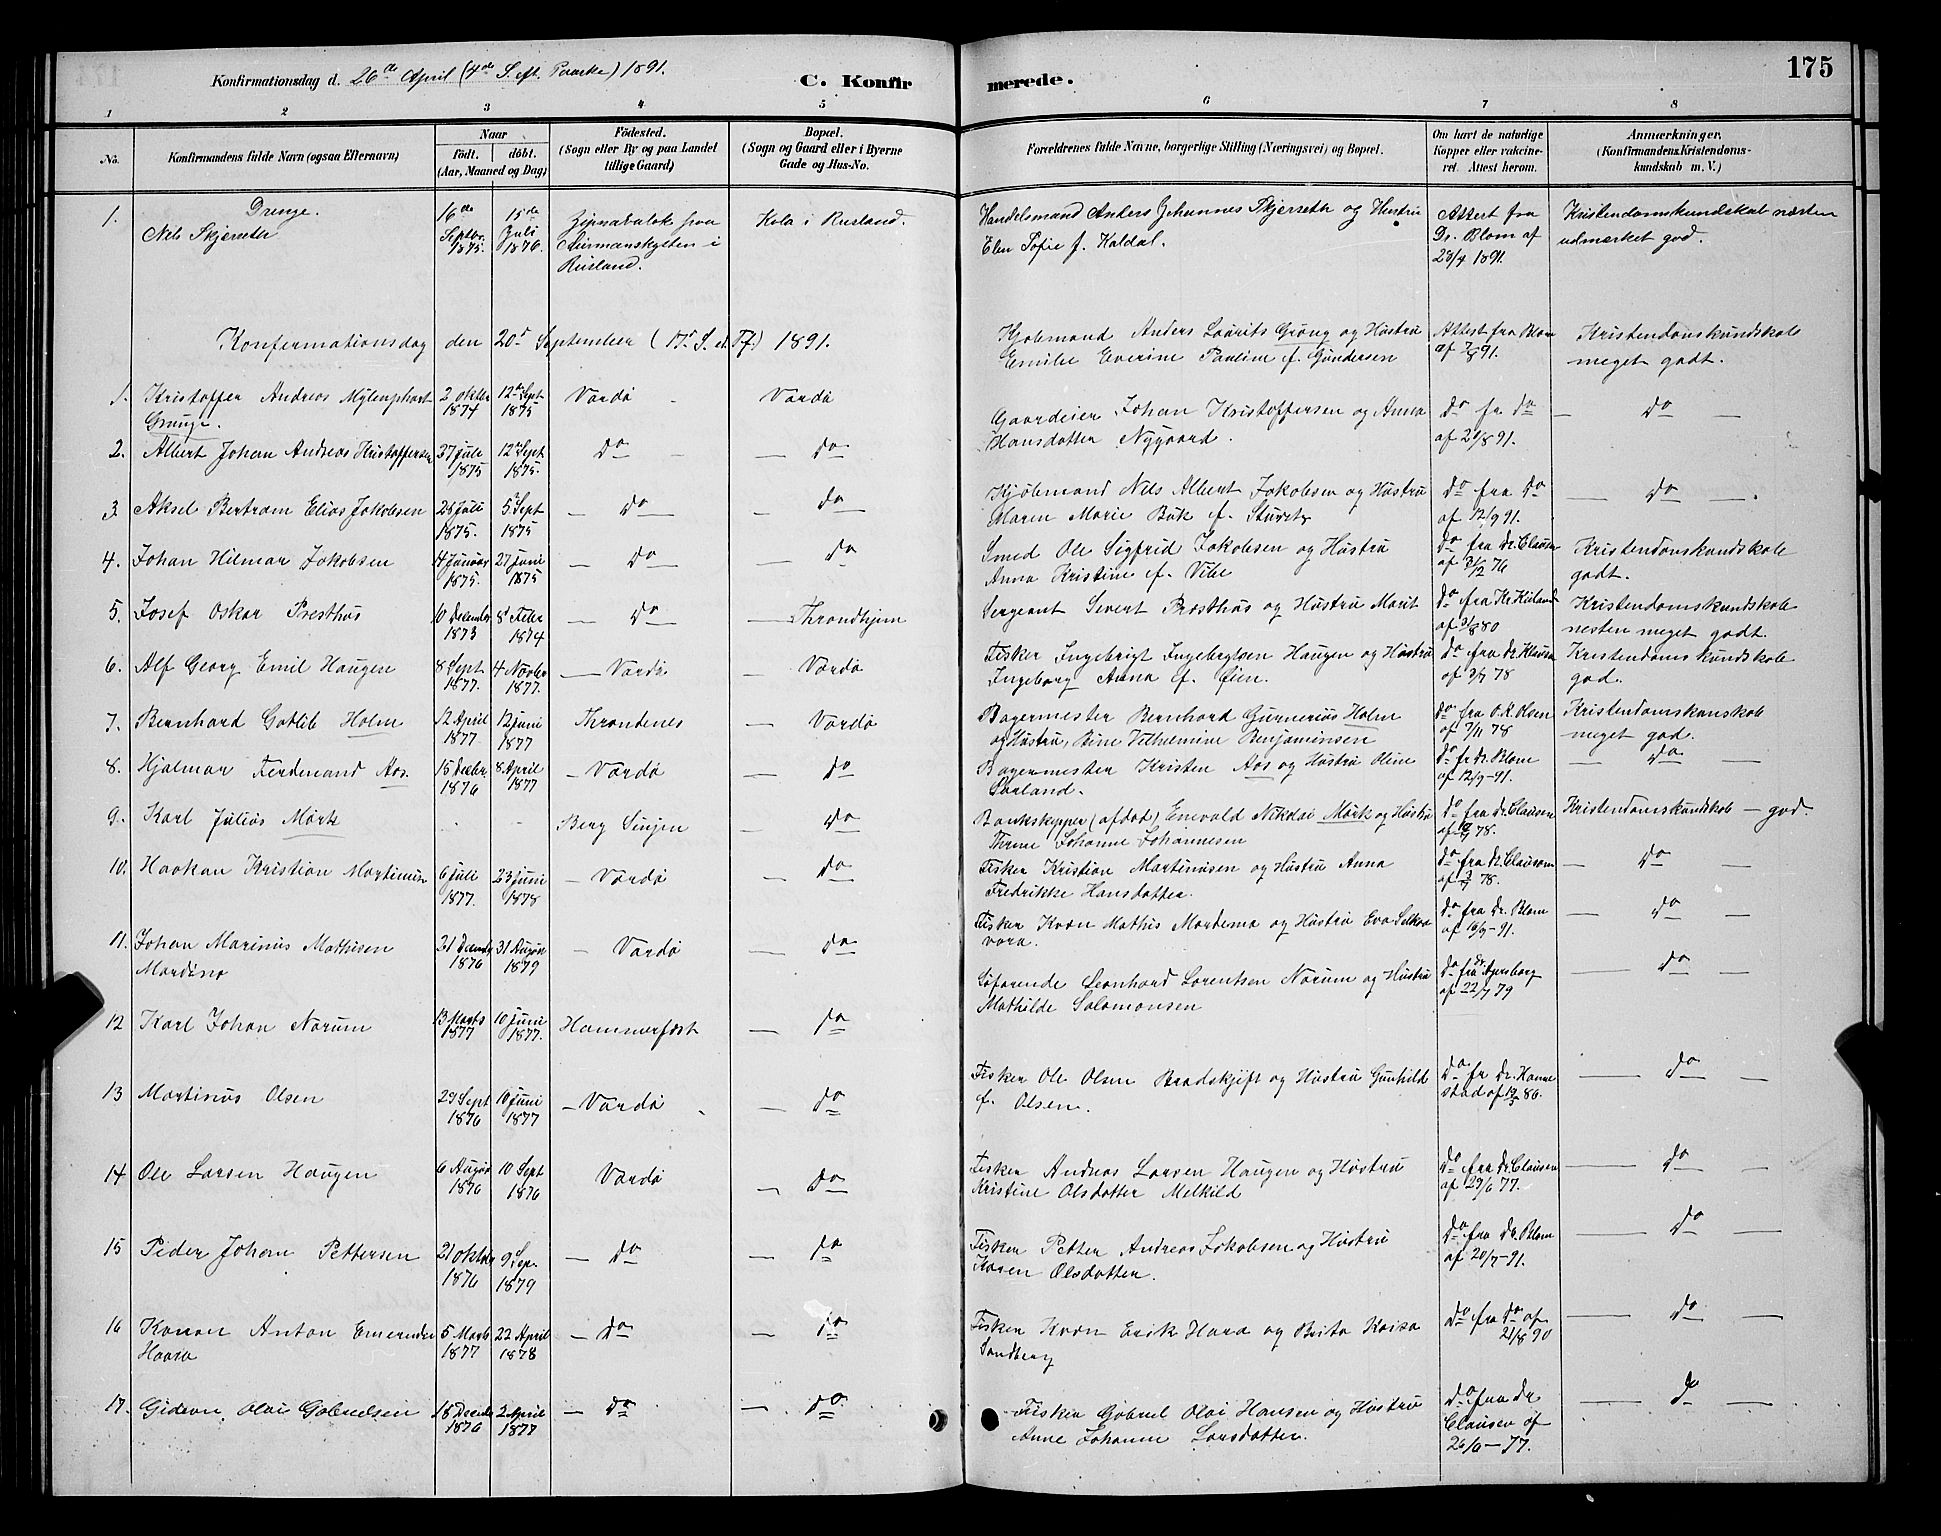 Konfirmationsdag d. 26de April (4de S. eft. Paaske) 1891.
C. Konfirmerede.
175
1 2 3 4 5 6 7 8
No.
Konfirmandens fulde Navn (ogsaa Efternavn)
Naar
födt. döbt.
(Aar, Maaned og Dag)
Födested.
(Sogn eller By og paa Landet
tillige Gaard)
Bopæl.
(Sogn og Gaard eller i Byerne
Gade og Hus-No.
Forældrenes fulde Navne, borgerlige Stilling (Næringsvei) og Bopæl.
Om havt de naturlige
Kopper eller vakcine-
ret. Attest herom.
Anmærkninger.
(Konfirmandens Kristendoms-
kundskab m. V.)
Drenge.
1. Nels Skjerseth
16de Septbr. 1875.
15de Juli 1876.
i
Rusland.
Kola i Rusland.
Handelsmand Anders Johannes Skjerseth og Hustru
Elen Sofie f. Kaldal.
Attest fra
Dr. Blom af
23/4 1891.
Kristendomskundskab næsten
udmerket god.
Konfirmationsdag den 20d September (17d S. e. Tf.) 1891.
1. Kristoffer Andreas
2 Oktbr 1874
12te Sept 1875
Vardø
Vardø
Kjøbmand Anders Laurits Grøng og Hustru
Emilie Everine Pauline f. Gundersen
Attest fra Blom
af 7/8 91.
Kristendomskundskab
meget godt.
2. Albert Johan Andreas Kristoffersen
27 Juli 1875
12te Sept 1875.
do
do
Gaardeier Johan Kristoffersen og Anna
Hansdatter Nygaard.
do fr do
do
3 Aksel Bertram Elias Jakobsen
28 Juli 1875.
5 Sept 1875
do
do
Kjøbmand Nels Albert Jakobsen og Hustru
Maren Marie Buk f.
do fra do
af 12/9 91.
do
4. Johan Hilmar Jakobsen
14 Januar 1875.
27 Juni 1875
do
do
Smed Ole Sigfrid Jakobsen og Hustru
Anna Kristine f. Vibe
do fra Dr. Clausen
Kristendomskundskab
godt.
5. Josef Oskar Presthus
10 December 1873
8 Febr 1874
do
Throndhjem
Sergeant Sivert Præsthus og Hustru Marit
Kristendomskundskab
nesten meget godt.
6. Alf Georg Emil Haugen
8 Sept 1877.
4 Novbr 1877.
Vardø
Vardø
Fisker Ingebrigt Ingebrigtsen Haugen og Hustru
Ingeborg Anna f. Øien.
do fra Dr. Klausen
Kristendomskundskab
god.
7. Bernhard Gotlib Holm
12 April 1877.
12 Juni 1877
Throndenes
Vardø
Bagermester Bernhard Gurnerius Holm
og Hustru, Bine Vilhelmine Benjaminsen
do fra O. K. Olsen
af 7/11 78
Kristendomskunskab
meget god.
8. Hjalmar Ferdinand Aas.
15 Decbr 1876
8 April 1877
Vardø
do
Bagermester Kristen Aas og Hustru Oline
do fr Dr. Blom
af 12/9-91.
do
9. Karl Julius Mørk
Berg Sinjen
do
Baadskipper (afdød) Enevald Nikolai Mørk og Hustru
Johanne Johannesen
do fra Dr. Clausen
Kristendomskundskab - god.
10. Haakan Kristian Martinus
6 Juli 1877.
23 Juni 1878
Vardø
do
Fisker Kristian Martinusen og Hustru Anna
Fredrikke Hansdatter.
do fra Dr. Clausen
do
11. Johan Marinus Mathisen
31 Decemb 1876
31 August 1879
Vardø
do
Fisker Kvæn Mathis og Hustru Eva
do fra Dr. Blom
do
12 Karl Johan Norum
13 Marts 1877
10 Juni 1877.
Hammerfest
do
Søfarende Leonhard Lorentsen Norum og Hustru
Mathilde Salomonsen
af 22/7 79
do
13 Martinus Olsen
29 Sept 1876
10 Juni 1877
Vardø
do
Fisker Ole Olsen Bradskjift og Hustru Gunhild
f. Olsen.
do
14 Ole Larsen Haugen
6 August 1876
10 Sept 1876
Vardø
do
Fisker Andreas Larsen Haugen og Hustru
Kristine Olsdatter Melkild
do fra Dr. Clausen
af 29/6 77.
do
15 Peder Johan Pettersen
21 Oktbr 1876
9 Sep. 1879
do
do
Fisker Petter Andreas Jakobsen og Hustru
Karen Olsdatter.
do fra Dr. Blom
af 20/7-91.
do
16 Konon Anton
5 Marts 1877
22 April 1878
do
do
Fisker Kvæn Erik Hara og Brita Kaisa
Sandberg
do fra do af
21/8 90
do
17. Gideon Olai Gabrielsen
18 Decemb 1876
2 April 1877
do
do
Fisker Gabriel Olai Hansen og Hustru
Anne Johanne Larsdatter.
do fra Dr
Clausen af
26/6-77.
do